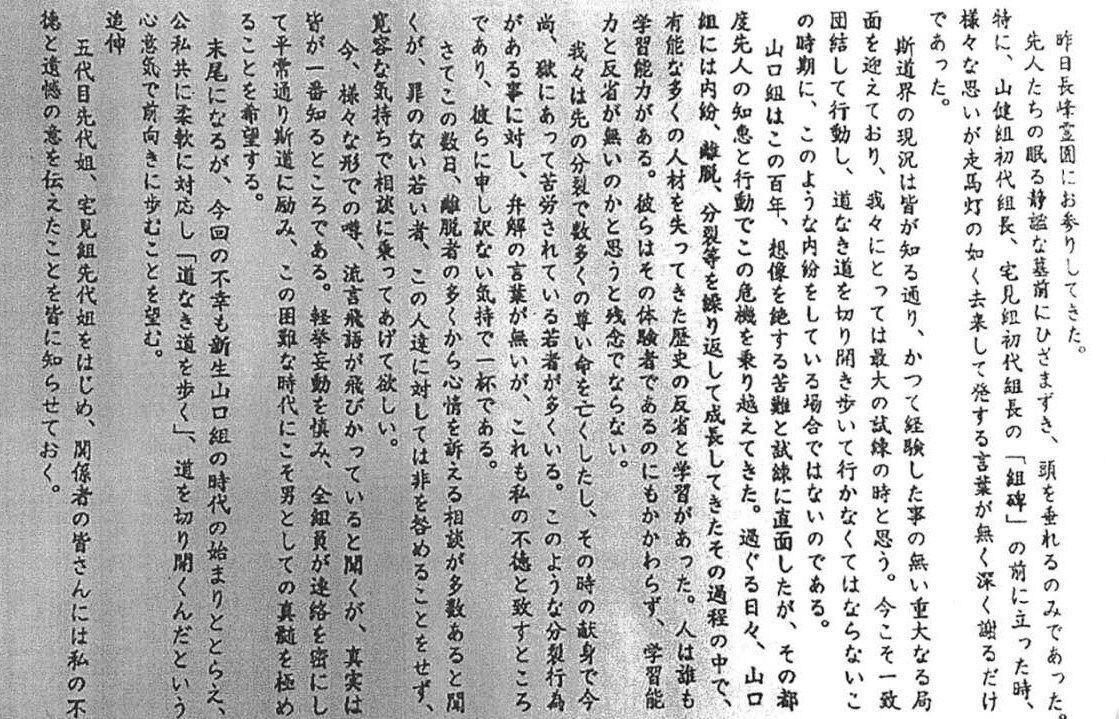 昨日長峰霊園にお参りしてきた。
先人たちの眠る静謐な墓前にひざまずき、頭を垂れるのみであった。
特に、山健組初代組長、宅見組初代組長の「組碑」の前に立った時、
様々な思いが走馬灯の如く去来して発する言葉が無く深く謝るだけ
であった。
斯道界の現況は皆が知る通り、かつて経験した事の無い重大なる局
面を迎えており、我々にとっては最大の試練の時と思う。今こそ一致
団結して行動し、道なき道を切り開き歩いて行かなくてはならないこ
の時期に、このような内紛をしている場合ではないのである。
山口組はこの百年、想像を絶する苦難と試練に直面したが、その都
度先人の知恵と行動でこの危機を乗り越えてきた。過ぐる日々、山口
組には内紛、離脱、分裂等を繰り返して成長してきたその過程の中で、
有能な多くの人材を失ってきた歴史の反省と学習があった。人は誰も
学習能力がある。彼らはその体験者であるのにもかかわらず、学習能
力と反省が無いのかと思うと残念でならない。
我々は先の分裂で数多くの尊い命を亡くしたし、その時の献身で今
尚、獄にあって苦労されている若者が多くいる。このような分裂行為
がある事に対し、弁解の言葉が無いが、これも私の不徳と致すところ
であり、彼らに申し訳ない気持で一杯である。
さてこの数日、離脱者の多くから心情を訴える相談が多数あると聞
くが、罪のない若い者、この人達に対しては非を咎めることをせず、
寛容な気持ちで相談に乗ってあげて欲しい。
今、様々な形での噂、流言飛語が飛びかっていると聞くが、真実は
皆が一番知るところである。軽挙妄動を慎み、全組員が連絡を密にし
て平常通り斯道に励み、この困難な時代にこそ男としての真髄を極め
ることを希望する。
末尾になるが、今回の不幸も新生山口組の時代の始まりととらえ、
公私共に柔軟に対応し「道なき道を歩く」、道を切り開くんだという
心意気で前向きに歩むことを望む。
追伸
五代目先代姐、宅見組先代姐をはじめ、関係者の皆さんには私の不
徳と遺憾の意を伝えたことを皆に知らせておく。